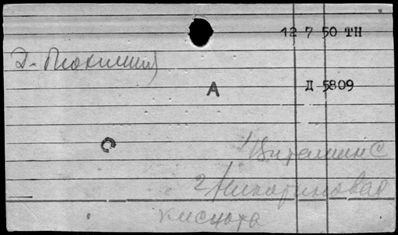 12 7 50 ТН
А
Д 5809
С
1) Витамин С
2) Никотиновая
кислота